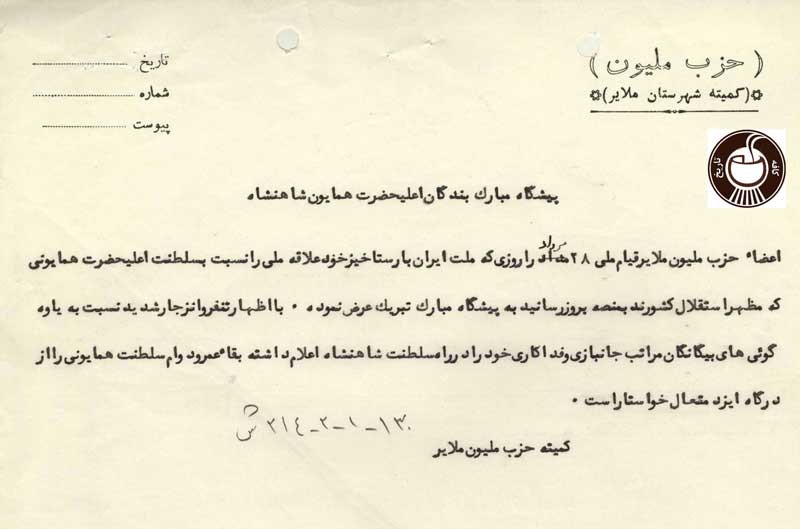 ( حزب ملیون )
(کمیته شهرستان ملایر)
تاریخ
شماره
پیوست
کافه تاریخ
پیشگاه مبارک بندگان اعلیحضرت همایون شاهنشاه
اعضاء حزب ملیون ملایر قیام ملی ۲۸ مرداد را روزی که ملت ایران با رستاخیز خود علاقه ملی را نسبت بسلطنت اعلیحضرت همایونی
که مظهر استقلال کشورند بمنصه بروز رسانید به پیشگاه مبارک تبریک عرض نموده ۰ با اظهار تنفر و انزجار شدید نسبت به یاوه
گوئی های بیگانگان مراتب جانبازی و فداکاری خود را در راه سلطنت شاهنشاه اعلام داشته بقاء عمر و دوام سلطنت همایونی را از
درگاه ایزد متعال خواستار است ۰
۱۳۰-۱-۲-۲۱۴ ش
کمیته حزب ملیون ملایر